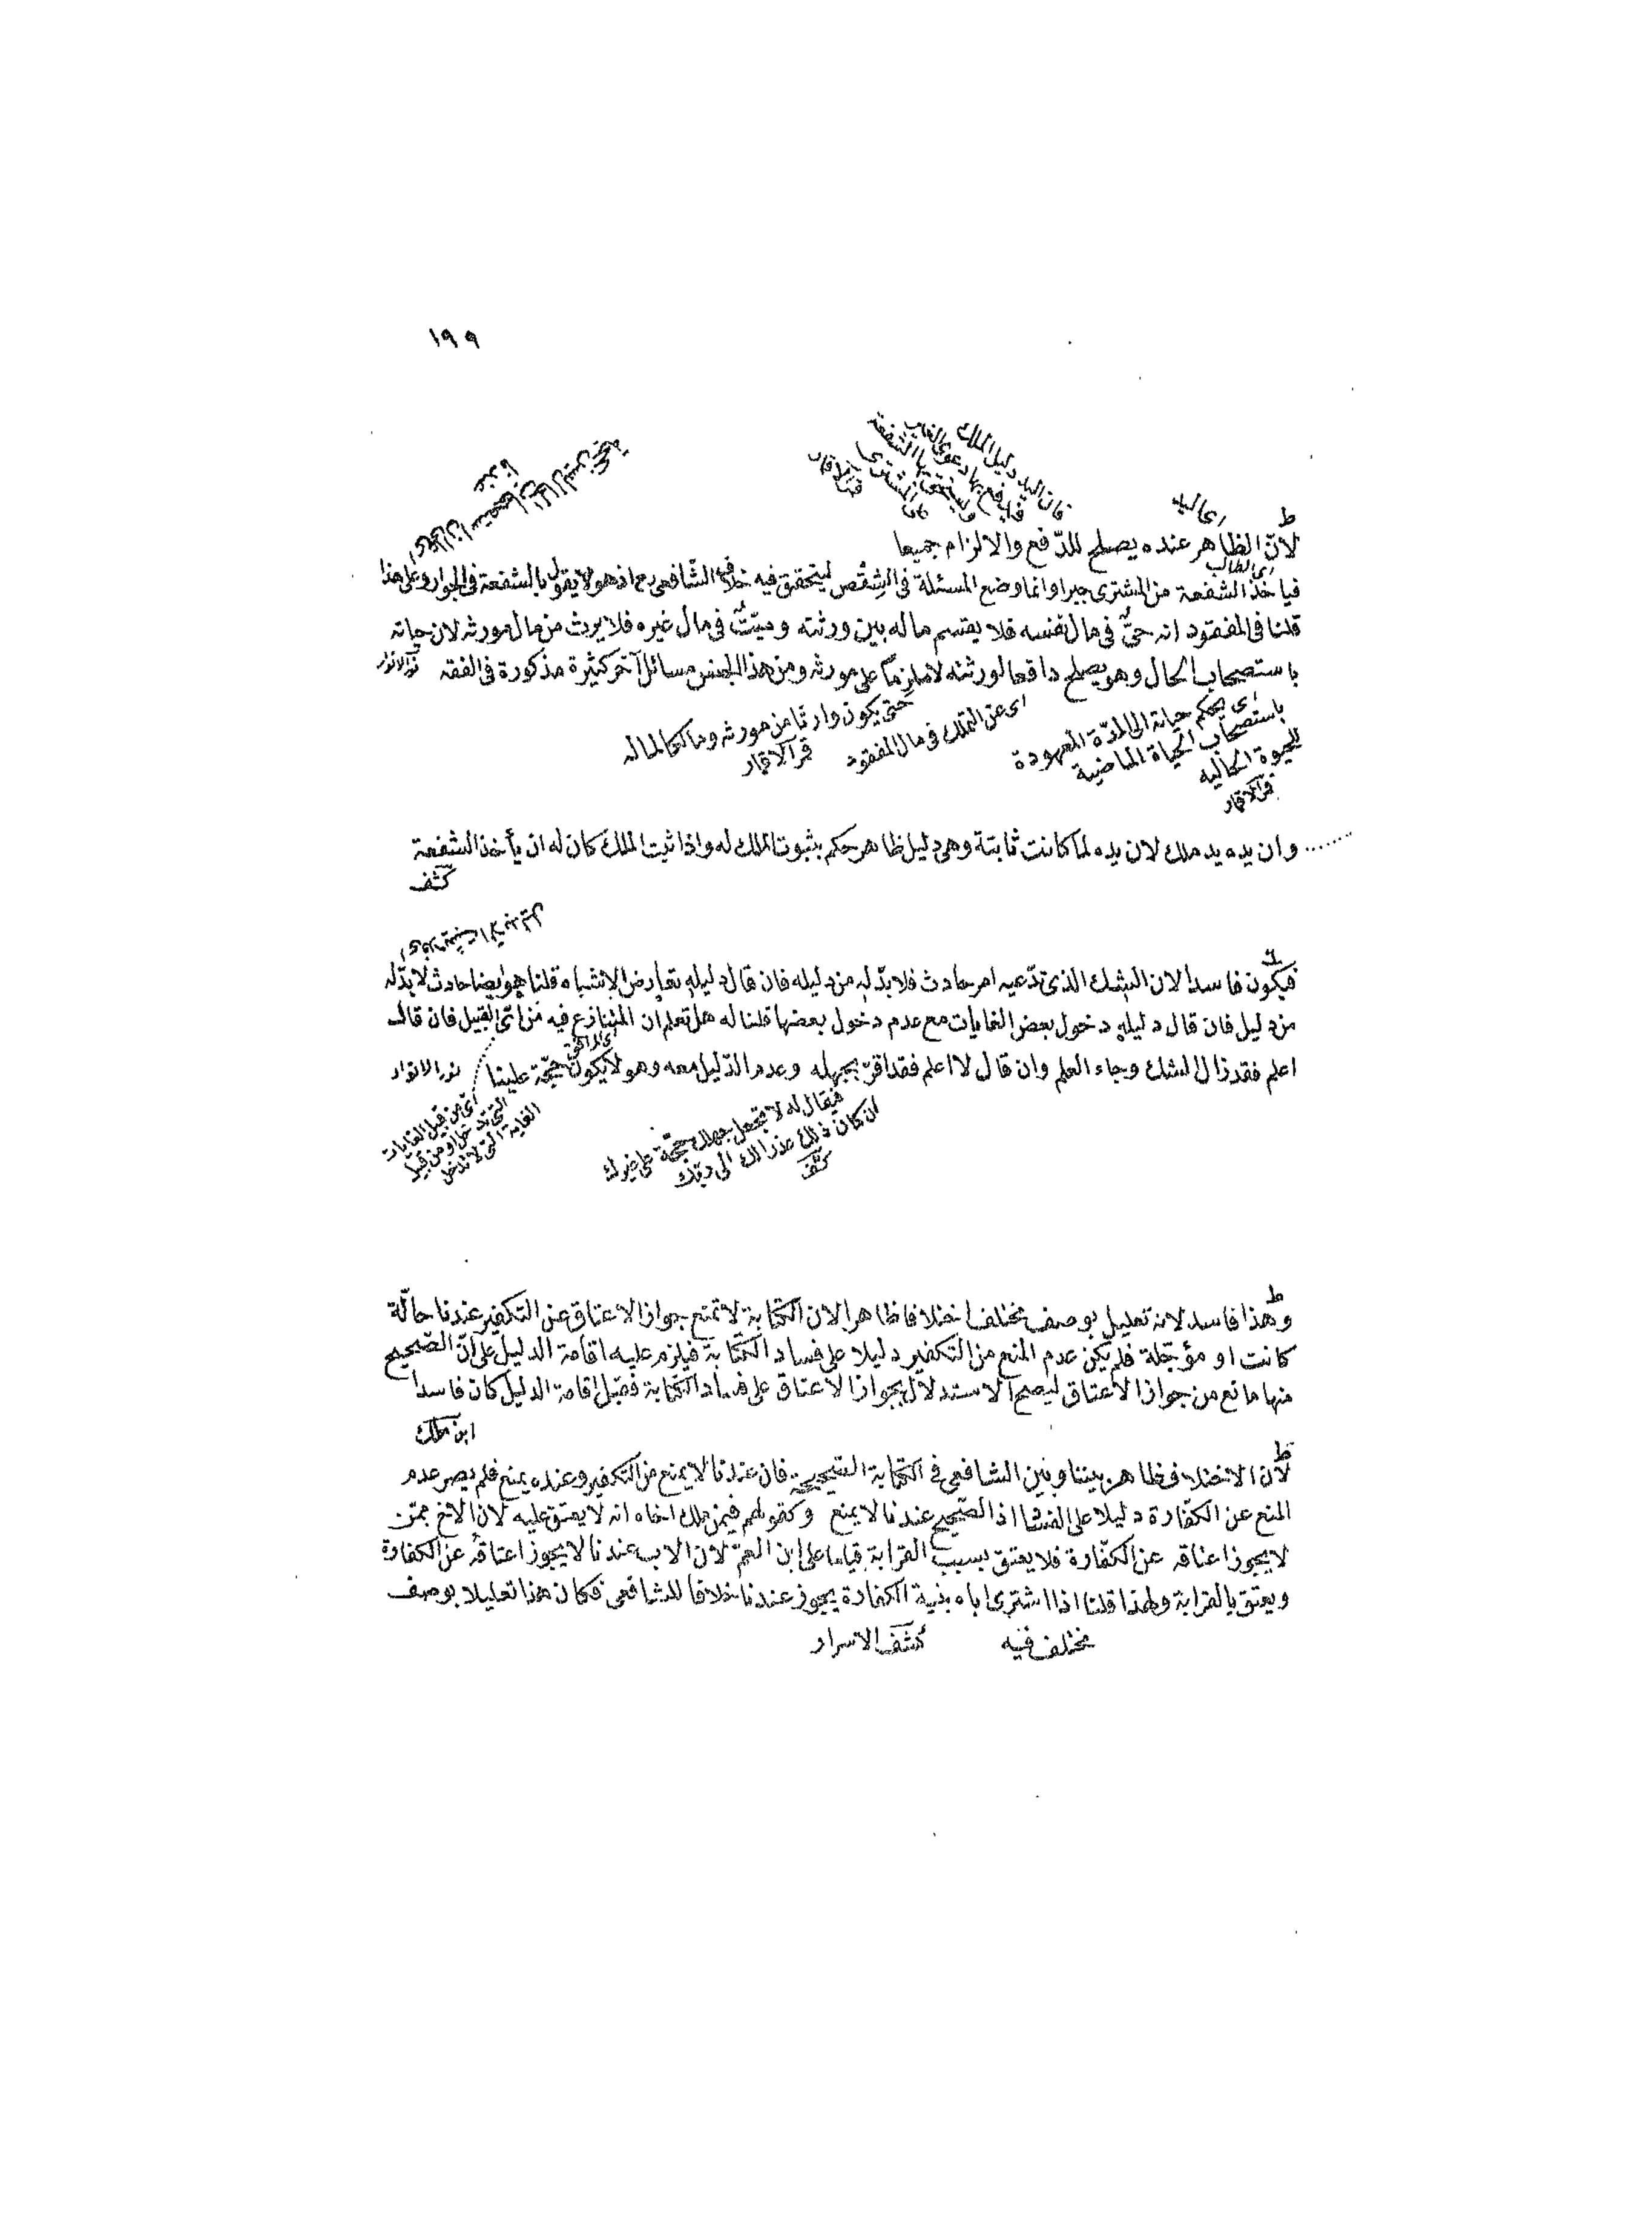 ١٩٩
فان اليد دليل الملك
فيدفع بها دعوى الغير
ويستحق بها الشفعة
على المشترى
قمر الاقمار
اى اليد
ط
لانّ الظاهر عنده يصلح للدّفع والالزام جميعا
اى الطالب
فيأخذ الشفعة من المشترى جبرا وانما وضع المسئلة فى الشِقْص ليتحقق فيه خلاف الشّافعى رح اذ هو لا يقول بالشفعة فى الجوار وعلى هذا
قلنا فى المفقود انه حىٌّ فى مال نفسه فلا يقتسم ماله بين ورثته وميّتٌ فى مال غيره فلا يرث من مال مورثه لان حياته
باستصحاب الحال وهو يصلح دافعا لورثته لا ملزمًا على مورثه ومن هذا الجنس مسائل آخر كثيرة مذكورة فى الفقه نور الانوار
اى بحكم حياته الى المدّة المعهودة
باستصحاب الحياة الماضية
للحيوة الحالية
قمر الاقمار
اى عن التملك فى مال المفقود
حتى يكون وارثا من مورثه ومالكا لماله
قمر الاقمار
وان يده يد ملك لان يده لما كانت ثابتة وهى دليل ظاهر حكم بثبوت الملك له واذا ثبت الملك كان له ان يأخذ الشفعة
كشف
فيكون فاسدا لان الشك الذى تدّعيه امر حادث فلا بدّ له من دليله فان قال دليله تعارض الاشباه قلنا هو ايضا حادث لا بدّ له
من دليل فان قال دليله دخول بعض الغايات مع عدم دخول بعضها قلنا له هل تعلم ان المتنازع فيه من اىّ القبيل فان قال
اى المرافق
اعلم فقد زال الشك وجاء العلم وان قال لا اعلم فقد اقرّ بجهله وعدم الدّليل معه وهو لا يكون حجّة علينا نور الانوار
اى من قبيل الغايات
التى تدخل او من قبيل
الغاية التى لا تدخل
فيقال له لا تجعل جهلك حجّة على غيرك
ان كان ذلك عذرا لك
كشف
ط
وهذا فاسد لانه تعليل بوصف مختلف اختلافا ظاهرا لان الكتابة لا تمنع جواز الاعتاق عن التكفير عندنا حالّة
كانت او مؤجّلة فلم يكن عدم المنع من التكفير دليلا على فساد الكتابة فيلزم عليه اقامة الدليل على انّ الصّحيح
منها مانع من جواز الاعتاق ليصح الاستدلال بجواز الاعتاق على فساد الكتابة فقبل اقامة الدليل كان فاسدا
ابن ملك
ط
لانّ الاختلاف ظاهر بيننا وبين الشافعى فى الكتابة الصّحيحة فان عندنا لا يمنع من التكفير وعنده يمنع فلم يصر عدم
المنع عن الكفّارة دليلا على الفساد اذ الصّحيح عندنا لا يمنع وكقولهم فيمن ملك اخاه انه لا يعتق عليه لان الاخ ممّن
لا يجوز اعتاقه عن الكفّارة فلا يعتق بسبب القرابة قياسا على ابن العمّ لان الاب عندنا لا يجوز اعتاقه عن الكفارة
ويعتق بالقرابة ولهذا قلنا اذا اشترى اباه بنية الكفارة يجوز عندنا خلافا للشافعى فكان هذا تعليلا بوصف
مختلف فيه كشف الاسرار